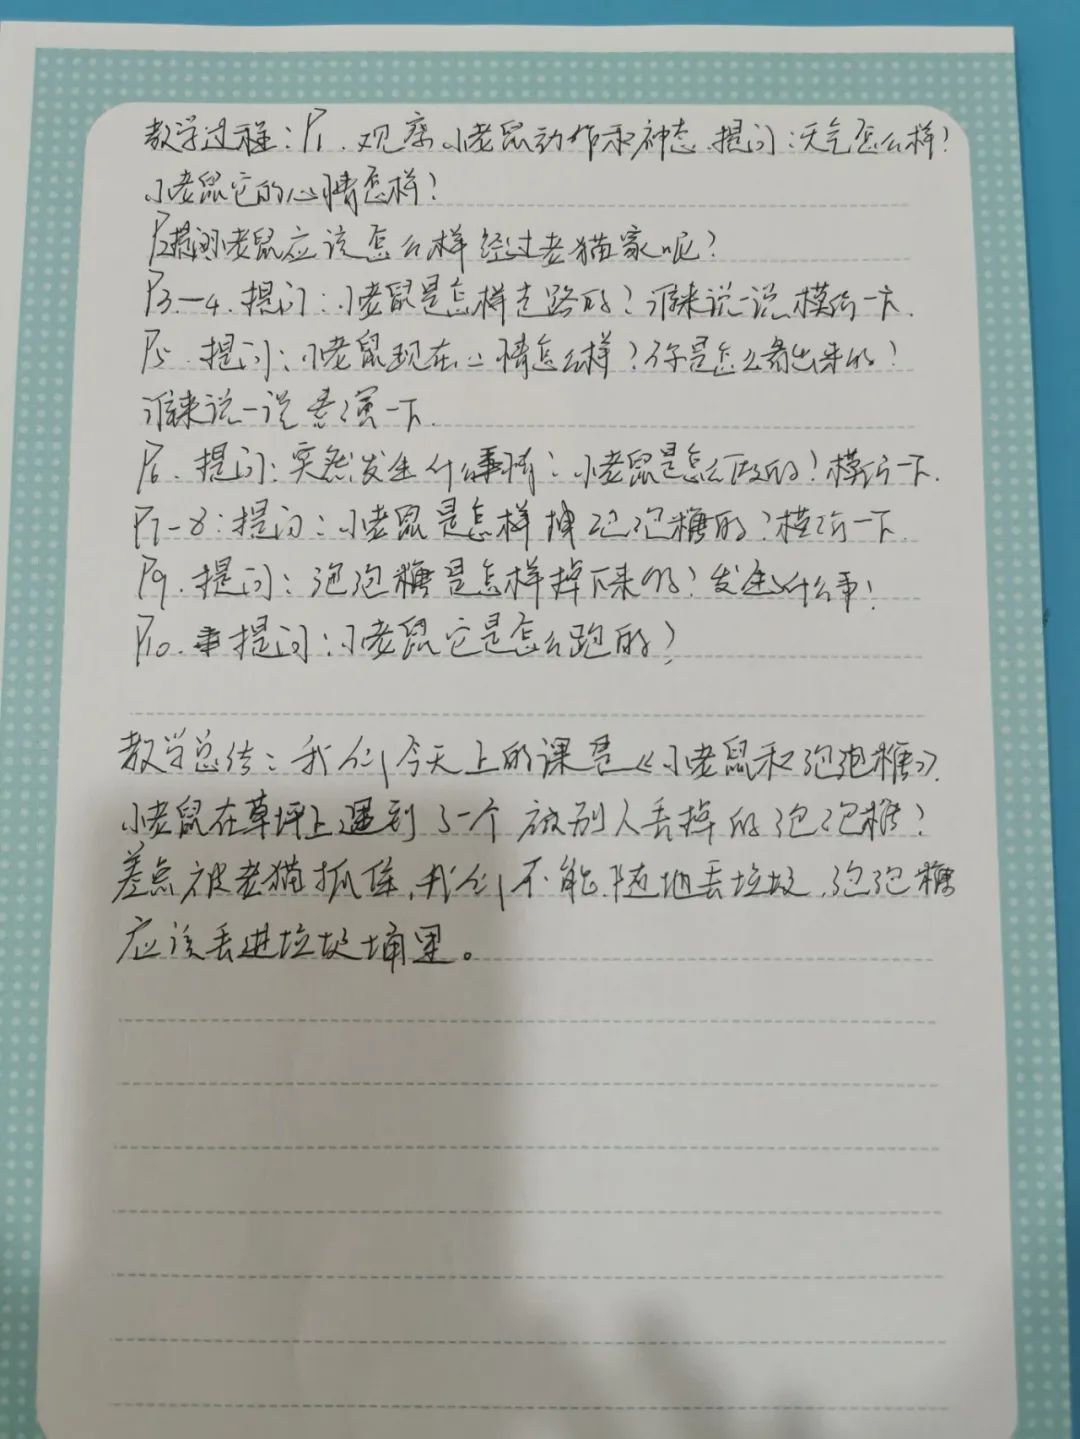 教学过程：P1、观察小老鼠动作和神态.提问：天气怎么样？
小老鼠它的心情怎样？
P2提问小老鼠应该怎么样经过老猫家呢？
P3—4.提问：小老鼠是怎样走路的？谁来说一说模仿一下.
P5.提问：小老鼠现在心情怎么样？你是怎么看出来的？
谁来说一说表演一下.
P6.提问：突然发生什么事情？小老鼠是怎么做的？模仿一下.
P7-8：提问：小老鼠是怎样拽泡泡糖的？模仿一下.
P9.提问：泡泡糖是怎样掉下来的？发生什么事？
P10.提问：小老鼠它是怎么跑的？
教学总结：我们今天上的课是《小老鼠和泡泡糖》.
小老鼠在草坪上遇到了一个被别人丢掉的泡泡糖？
差点被老猫抓住,我们不能随地丢垃圾.泡泡糖
应该丢进垃圾埇里。